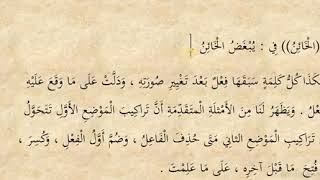 (الْخَائِنُ)) فِي : يُبْغَضُ الْخَائِنُ
كَذَا كُلُّ كَلِمَةٍ سَبَقَهَا فِعْلٌ بَعْدَ تَغْيِيرِ صُورَتِهِ ، وَدَلَّتْ عَلَى مَا وَقَعَ عَلَيْهِ
عْلُ . وَيَظْهَرُ لَنَا مِنَ الْأَمْثِلَةِ الْمُتَقَدِّمَةِ أَنَّ تَرَاكِيبَ الْمَوْضِعِ الْأَوَّلِ تَتَحَوَّلُ
تَرَاكِيبِ الْمَوْضِعِ الثَّانِي مَتَى حُذِفَ الْفَاعِلُ ، وَضُمَّ أَوَّلُ الْفِعْلِ ، وَكُسِرَ ،
فُتِحَ مَا قَبْلَ آخِرِهِ ، عَلَى مَا عَلِمْتَ .